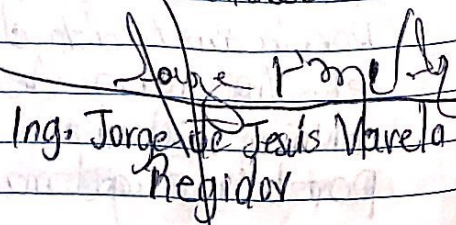 Ing. Jorge de Jesús Varela
Regidor